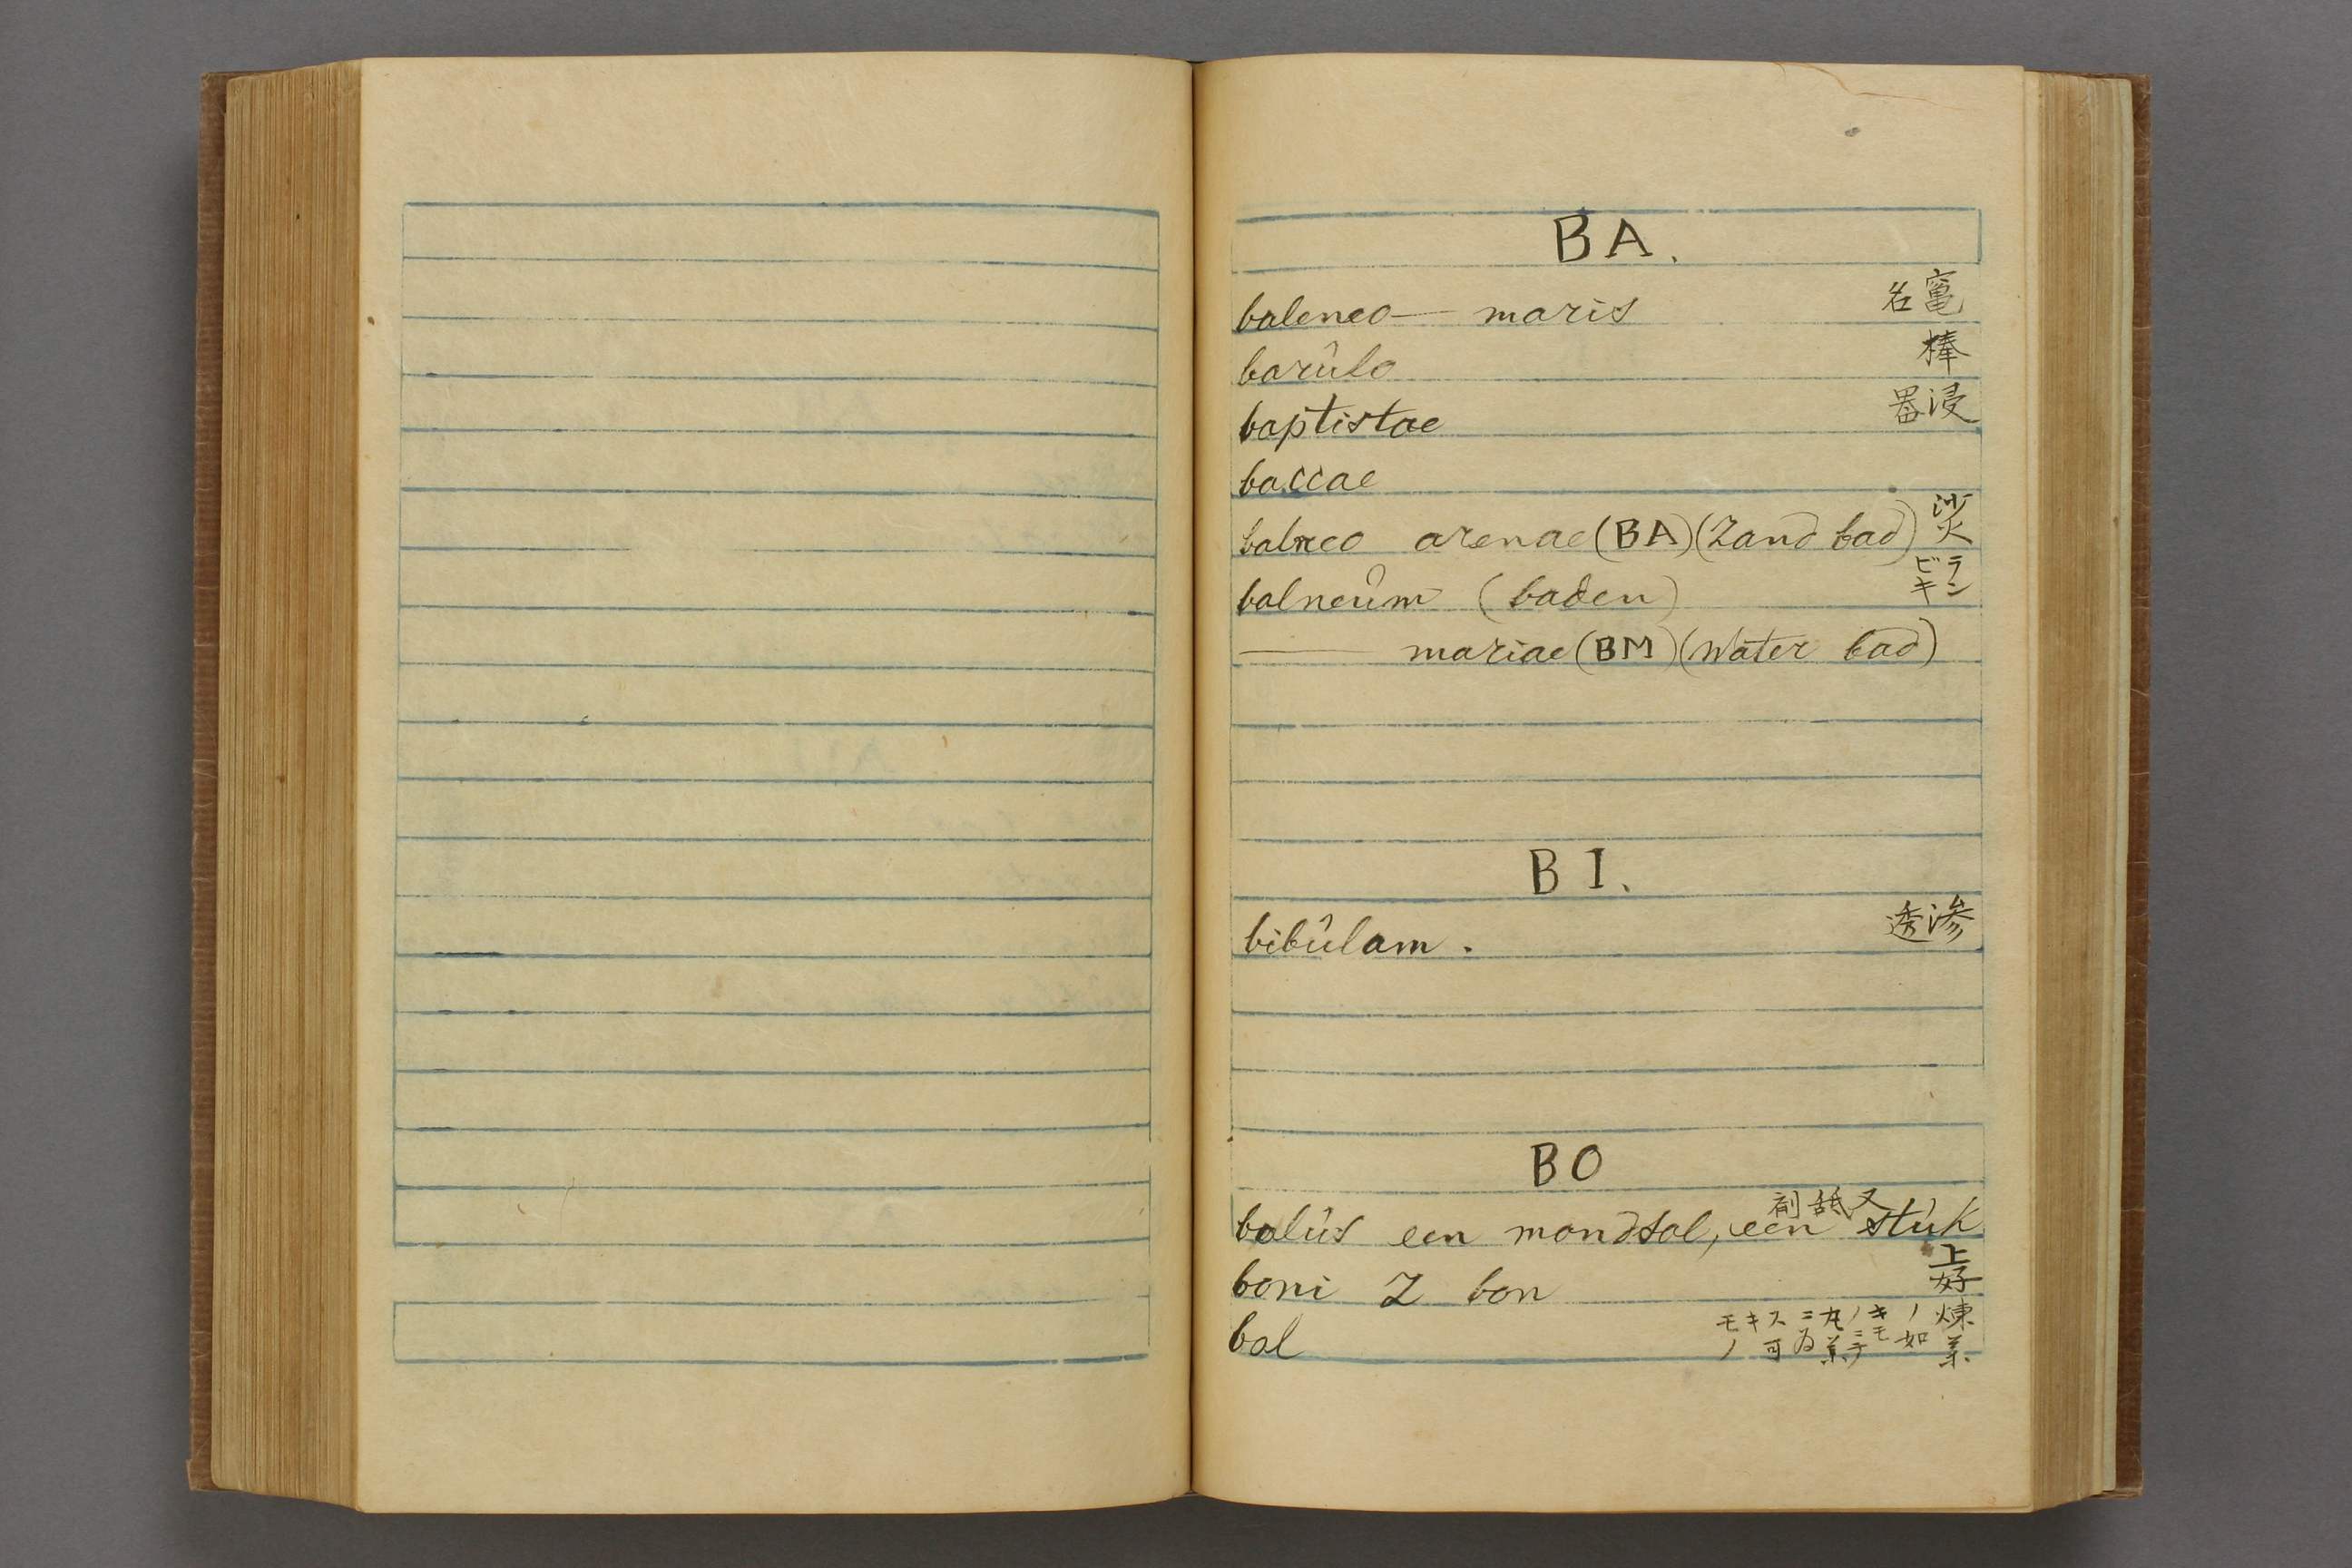 BA.
baleneo — maris 竈名
barûlo 棒
baptistae 浸器
baccae
balneo arenae (BA) (Zand bad) 沙火
balneûm (baden) ランビキ
— mariae (BM) (Water bad)
BI.
bibûlam. 滲透
BO
又舐剤
bolûs een mondsol, een stuk
boni Z bon 上好
bol 煉薬ノ如キモノニテ丸薬ニ為ス可キモノ